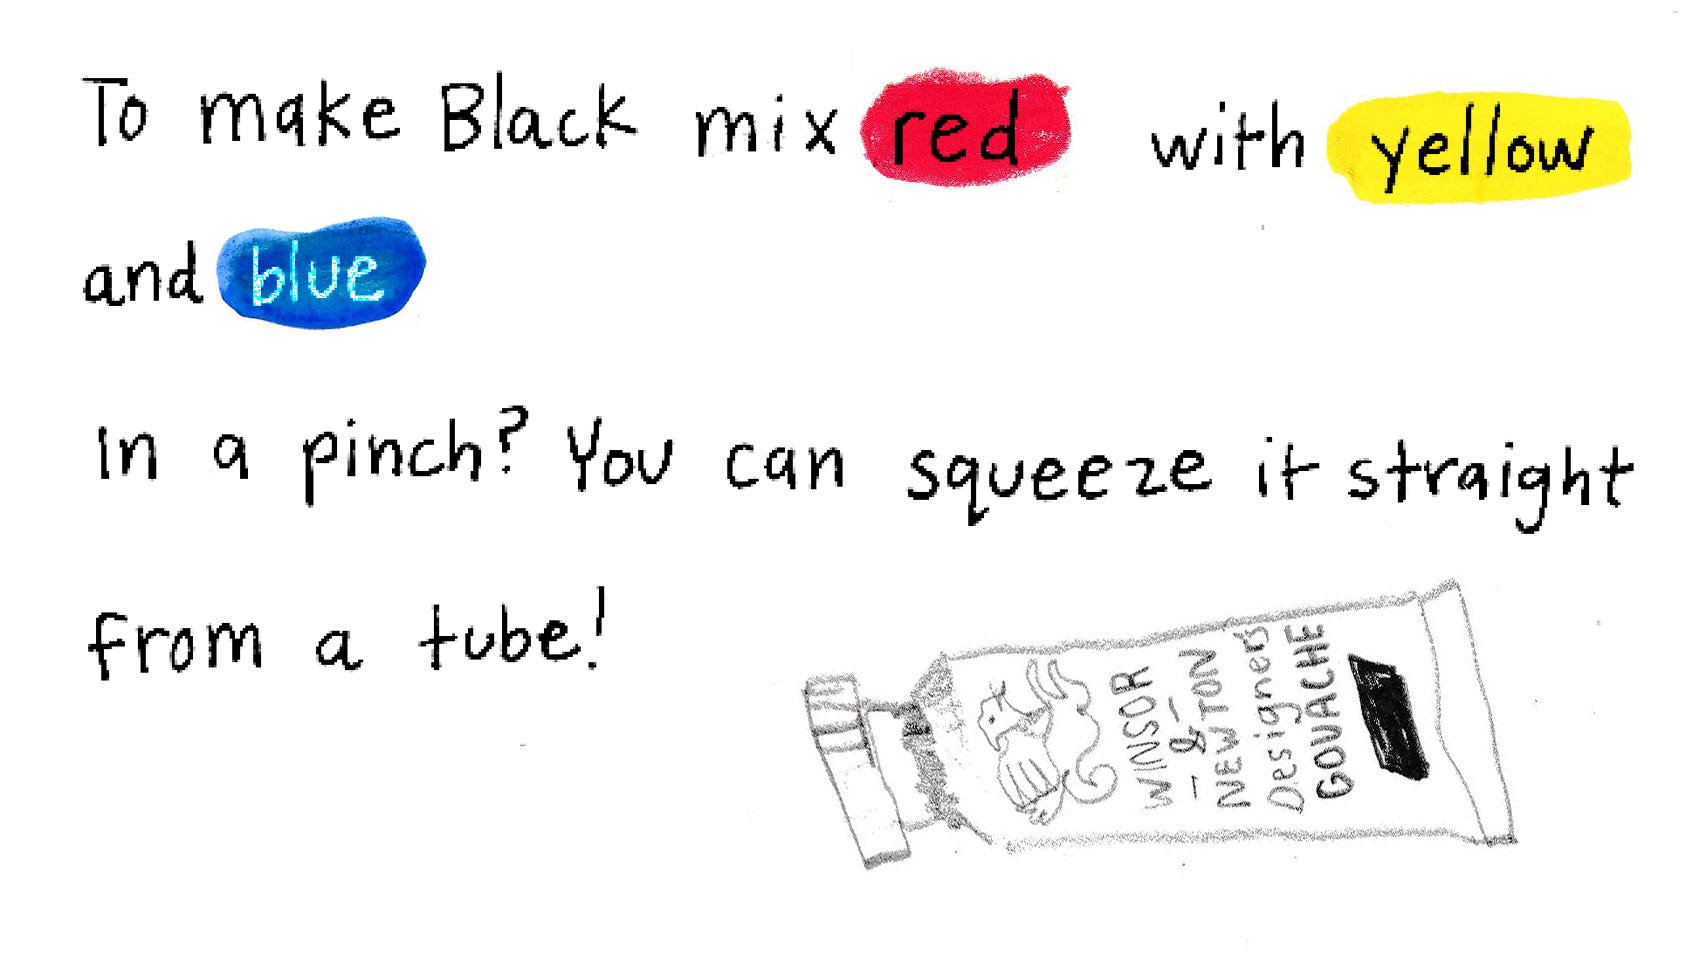 To make Black mix red with yellow
and blue
In a pinch? You can squeeze it straight
from a tube!
WINSOR
-&-
NEWTON
Designers
GOUACHE